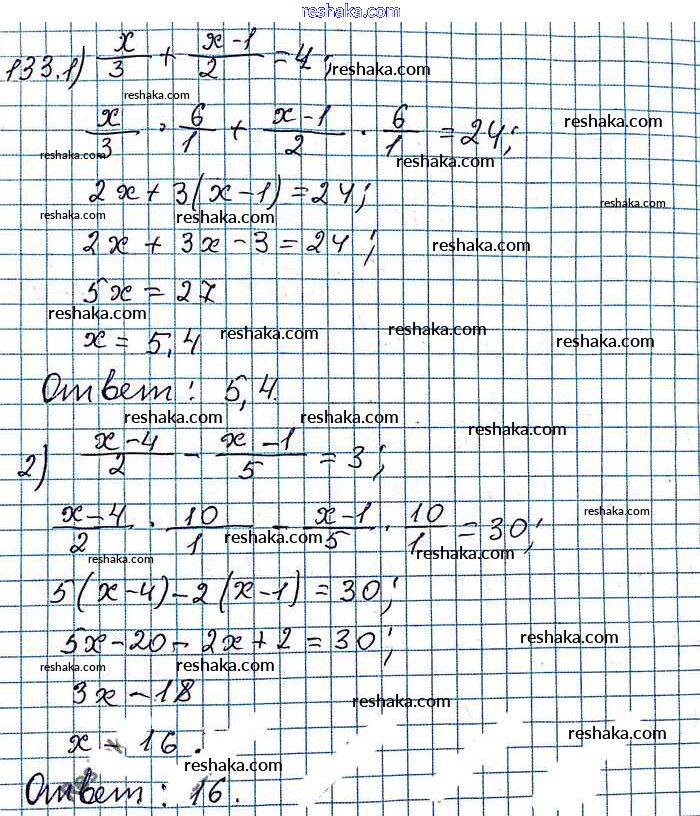 reshaka.com
133.1) x/3 + (x-1)/2 = 4; reshaka.com
reshaka.com
x/3 · 6/1 + (x-1)/2 · 6/1 = 24; reshaka.com
reshaka.com reshaka.com
2x + 3(x-1) = 24; reshaka.com
reshaka.com reshaka.com
2x + 3x - 3 = 24; reshaka.com
5x = 27
reshaka.com
x = 5,4 reshaka.com reshaka.com reshaka.com
Ответ: 5,4.
reshaka.com reshaka.com
2) (x-4)/2 - (x-1)/5 = 3; reshaka.com
reshaka.com
(x-4)/2 · 10/1 - (x-1)/5 · 10/1 = 30; reshaka.com
reshaka.com reshaka.com reshaka.com
5(x-4) - 2(x-1) = 30;
5x - 20 - 2x + 2 = 30; reshaka.com
reshaka.com reshaka.com
3x - 18
reshaka.com
x - 16. reshaka.com
reshaka.com
Ответ: 16.
reshaka.com